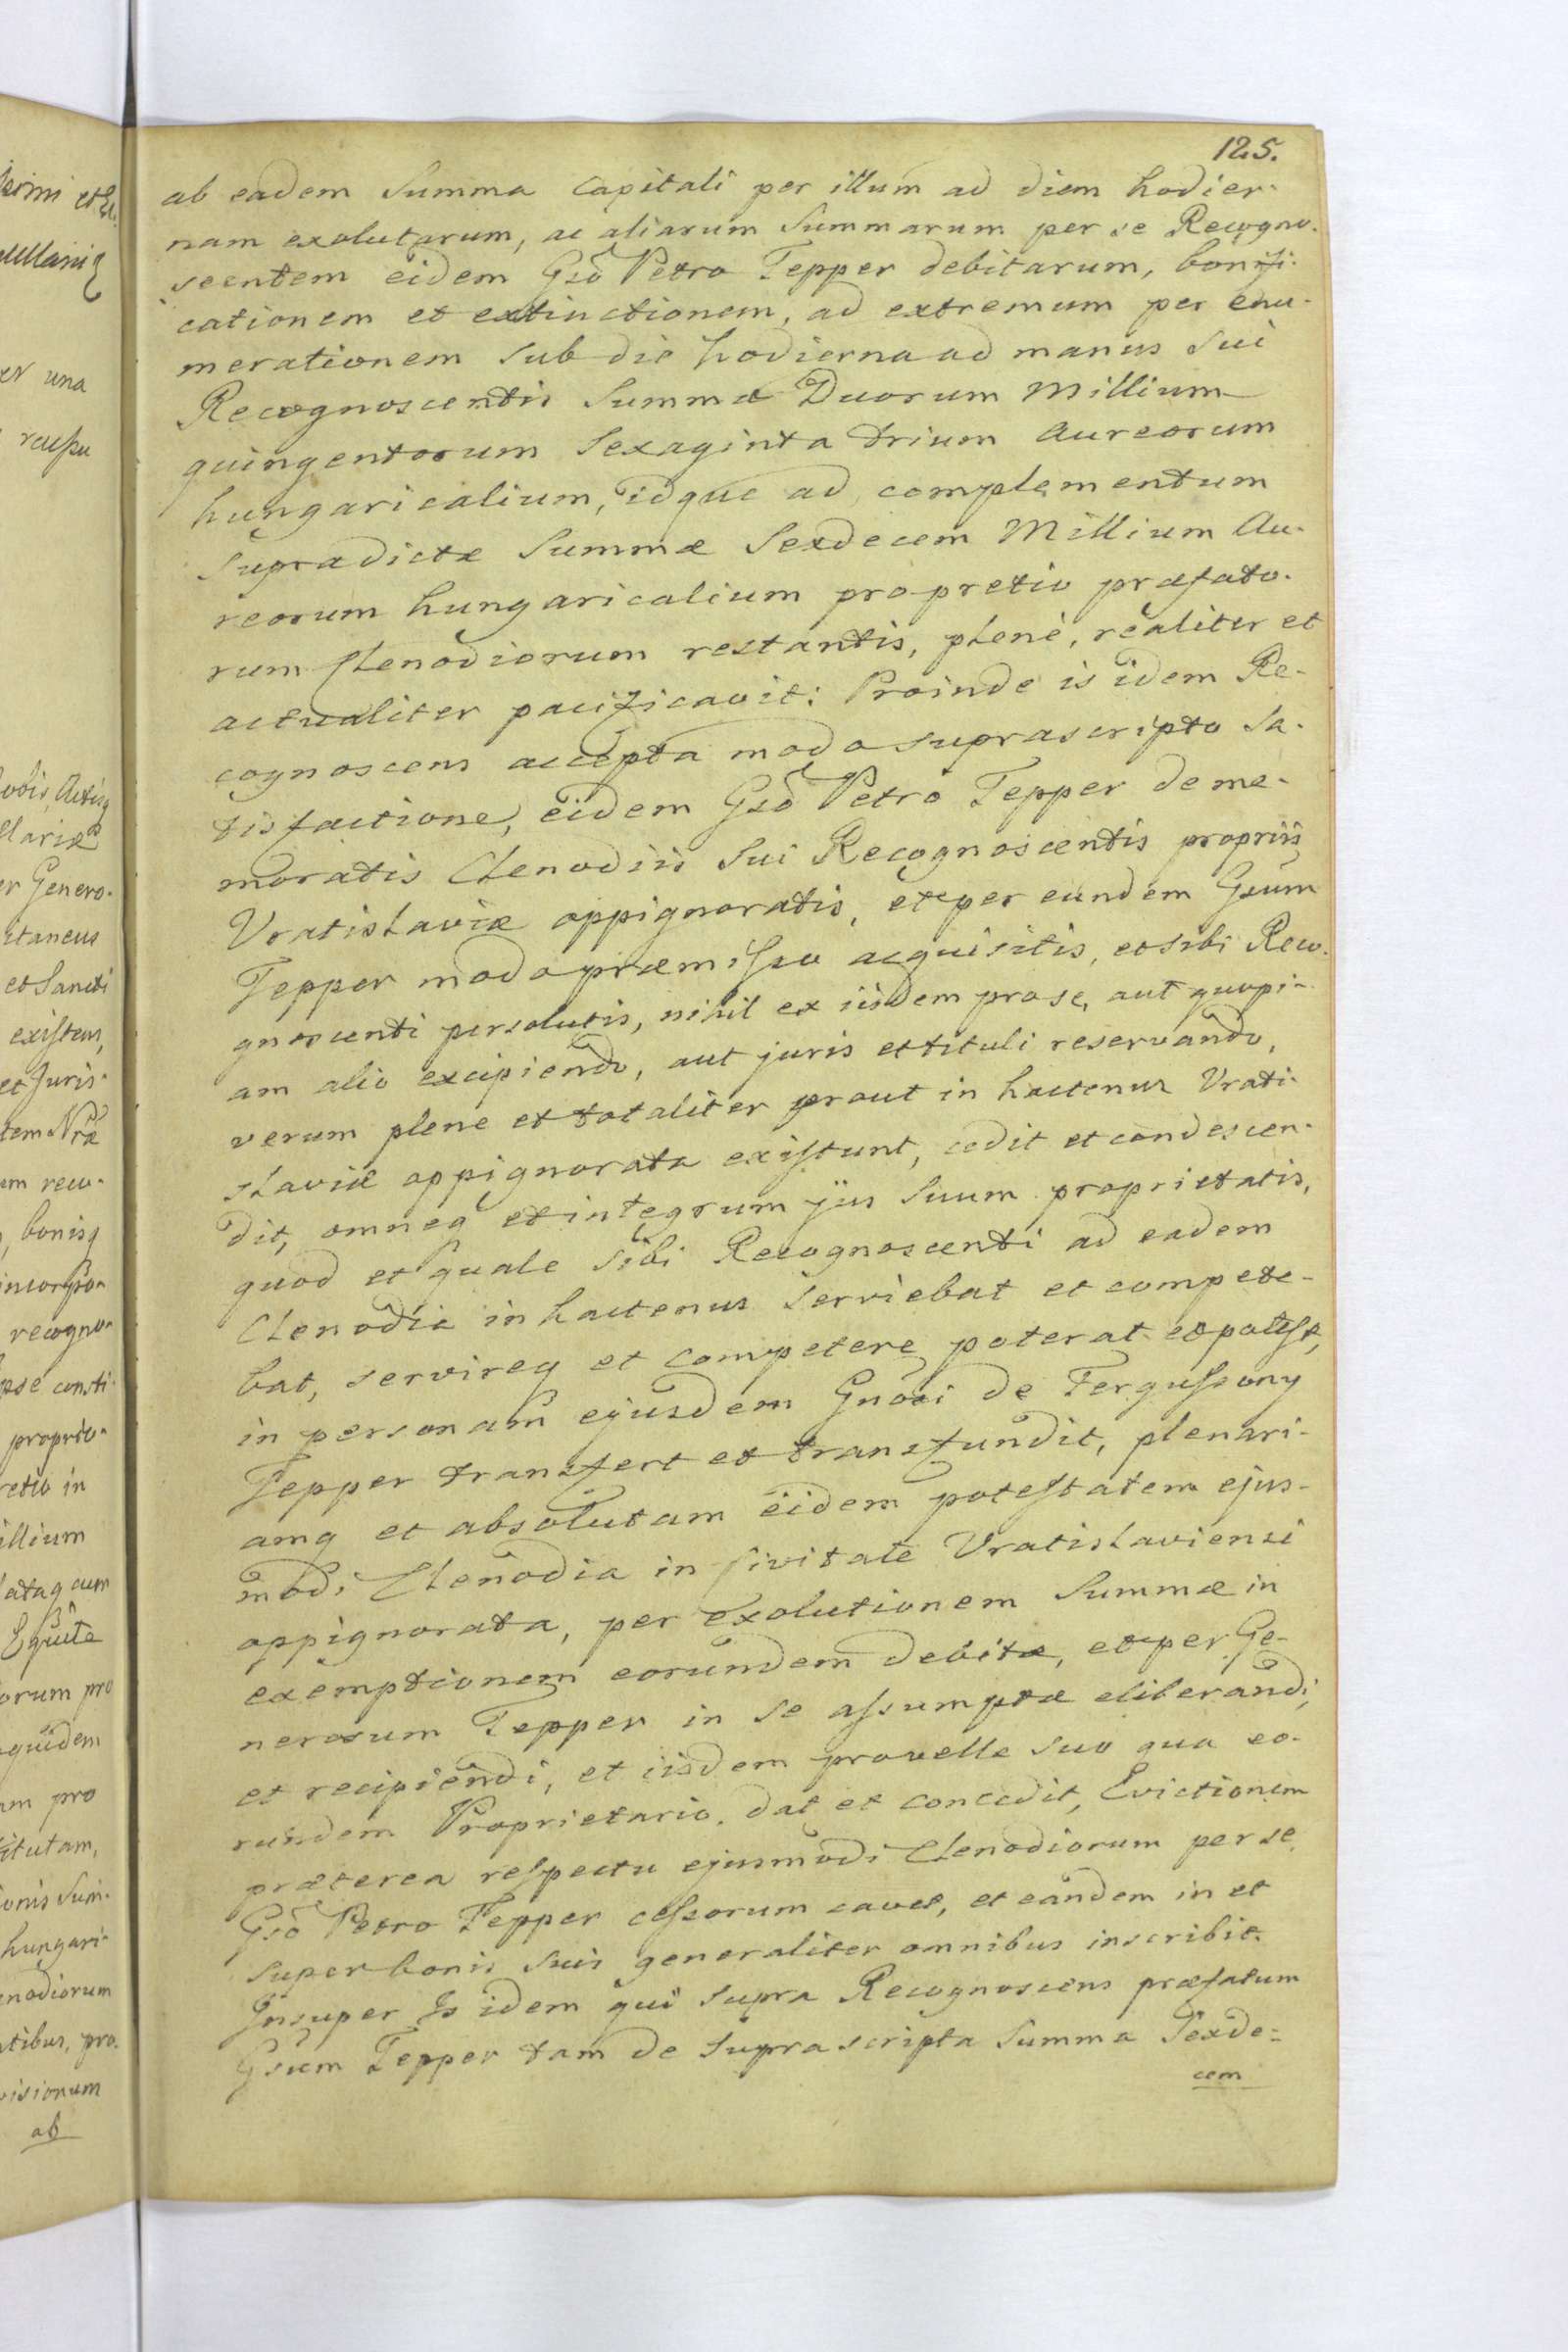 125.
ab eadem Summa Capitali per illum ad diem hodier-
nam exolutarum, ac aliarum Summarum per se Recogno-
scentem eidem Gso Petro Tepper debitarum, bonifi-
cationem et extinctionem, ad extremum per enu-
merationem sub die hodierna ad manus Sui
Recognoscentis Summæ Duorum Millium
quingentorum Sexaginta trium Aureorum
hungaricalium, idque ad complementum
supradictæ Summæ Sexdecem Millium Au-
reorum hungaricalium pro pretio præfato-
rum Clenodiorum restantis, plenè, realiter et
actualiter pacificavit: Proinde is idem Re-
cognoscens accepta modo supra scripto sa-
tisfactione, eidem Gso Petro Tepper de me-
moratis Clenodiis Sui Recognoscentis propriis
Vratislaviæ oppignoratis, et per eundem Gsum
Tepper modo præmisso acquisitis, et sibi Reco-
gnoscenti persolutis, nihil ex iisdem pro se, aut quopi-
am alio excipiendo, aut juris et tituli reservando,
verum plene et totaliter prout in hactenus Vrati-
slaviæ oppignorata existunt, cedit et condescen-
dit, omneq et integrum jus Suum proprietatis,
quod et quale Sibi Recognoscenti ad eadem
Clenodia in hactenus serviebat et compete-
bat, servireq et competere poterat et potest,
in personam ejusdem Gnosi de Fergussony
Tepper transfert et transfundit, plenari-
amq et absolutam eidem potestatem ejus-
modi Clenodia in Civitate Vratislaviensi
oppignorata, per exolutionem Summæ in
exemptionem eorundem debitæ, et per Ge-
nerosum Tepper in se assumptæ eliberandi,
et recipiendi, et iisdem pro velle suo qua eo-
rundem Proprietario, dat et concedit, Evictionem
præterea respectu ejusmodi Clenodiorum per se
Gso Petro Tepper cessorum cavet, et eandem in et
super bonis suis generaliter omnibus inscribit.
Insuper Is idem qui supra Recognoscens præfatum
Gsum Tepper tam de supra scripta Summa Sexde-
cem